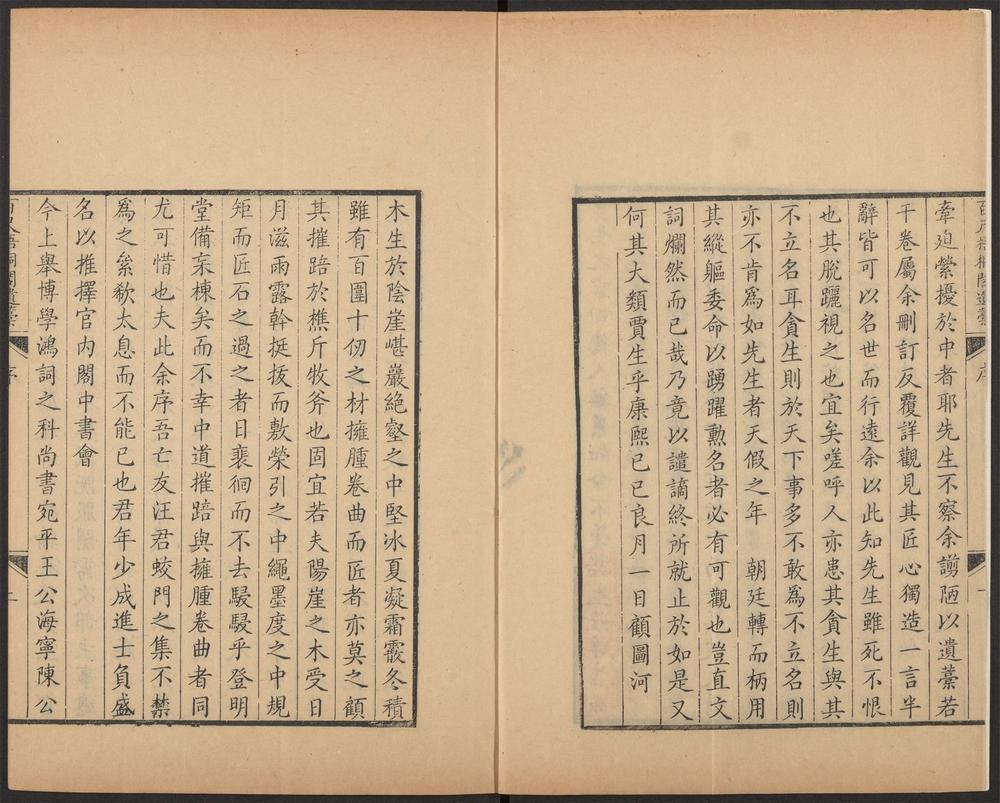 百尺梧桐閣遺藁
序
牽迫縈擾於中者耶先生不察余謭陋以遺藁若
干卷屬余刪訂反覆詳觀見其匠心獨造一言半
辭皆可以名世而行遠余以此知先生雖死不恨
也其脫躧視之也宜矣嗟呼人亦患其貪生與其
不立名耳貪生則於天下事多不敢為不立名則
亦不肯為如先生者天假之年　朝廷轉而柄用
其縱軀委命以踴躍勲名者必有可觀也豈直文
詞爛然而已哉乃竟以譴謫終所就止於如是又
何其大類賈生乎康熙己巳良月一日顧圖河
木生於陰崖嵁巖絶壑之中堅冰夏凝霜霰冬積
雖有百圍十仞之材擁腫卷曲而匠者亦莫之顧
其摧踣於樵斤牧斧也固宜若夫陽崖之木受日
月滋雨露幹挺拔而敷榮引之中繩墨度之中規
矩而匠石之過之者日裴徊而不去駸駸乎登明
堂備宋棟矣而不幸中道摧踣與擁腫卷曲者同
尤可惜也夫此余序吾亡友汪君蛟門之集不禁
為之絫欷太息而不能已也君年少成進士負盛
名以推擇官內閣中書會
今上舉博學鴻詞之科尚書宛平王公海寧陳公
百尺梧桐閣遺藁
序